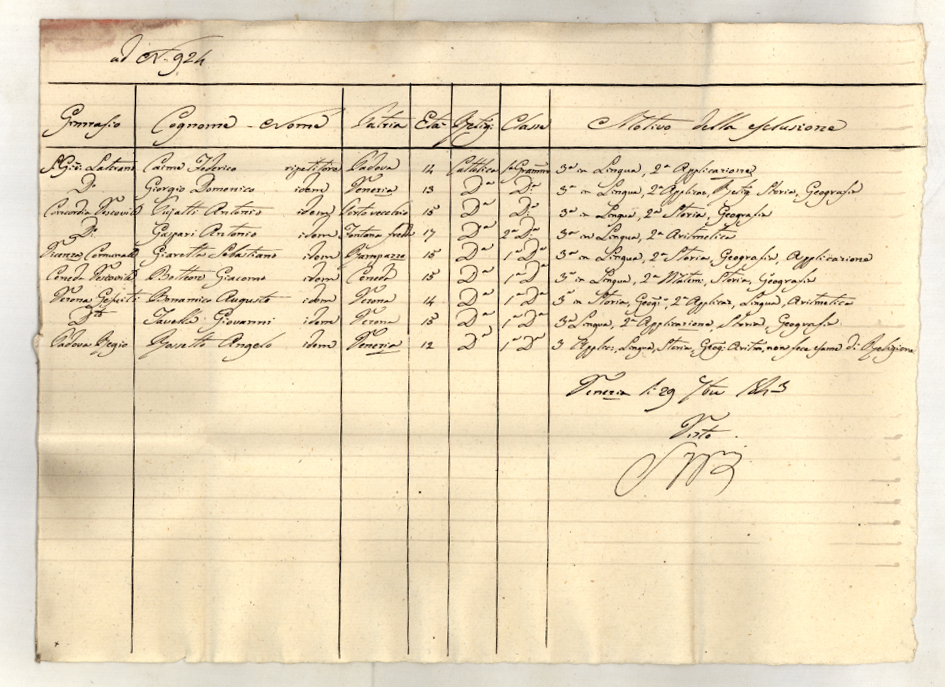 ad N. 924
Ginnasio Cognome e Nome Patria Età Relig. Classe Motivo della esclusione
S. Gio: Laterano Caime Federico ripetitore Padova 14 Cattolica 1a Gramm 3a in Lingua, 2a Applicazione
Do Giorgio Domenico idem Venezia 13 Da Da 3a in Lingua, 2a Applicaz, Relig. Storia, Geografia
Concordia Vescovile Antonio idem Porto vecchio 15 Da Da 3a in Lingua, 2a Storia, Geografia
Do Gaspari Antonio idem Fontana fredda 17 Da 2a Da 3a in Lingua, 2a Aritmetica
Vicenza Comunale Giaretta Sebastiano idem Rampazzo 15 Da 1a Da 3a in Lingua, 2a Storia, Geografia, Applicazione
Ceneda Vescovile Giacomo idem Ceneda 15 Da 1a Da 3a in Lingua, 2a Matem: Storia, Geografia
Verona Gesuiti Bonamico Augusto idem Verona 14 Da 1a Da 3a in Storia, Geog:a 2a Applicaz, Lingua, Aritmetica
Dtto Tavella Giovanni idem Verona 15 Da 1a Da 3a Lingua, 2a Applicazione, Storia, Geografia
Padova Regio Rossetti Angelo idem Venezia 12 Da 1a Da 3 Applicaz, Lingua, Storia, Geog: Aritm, non fece esame di Religione
Venezia li 29 7bre 1843
Visto